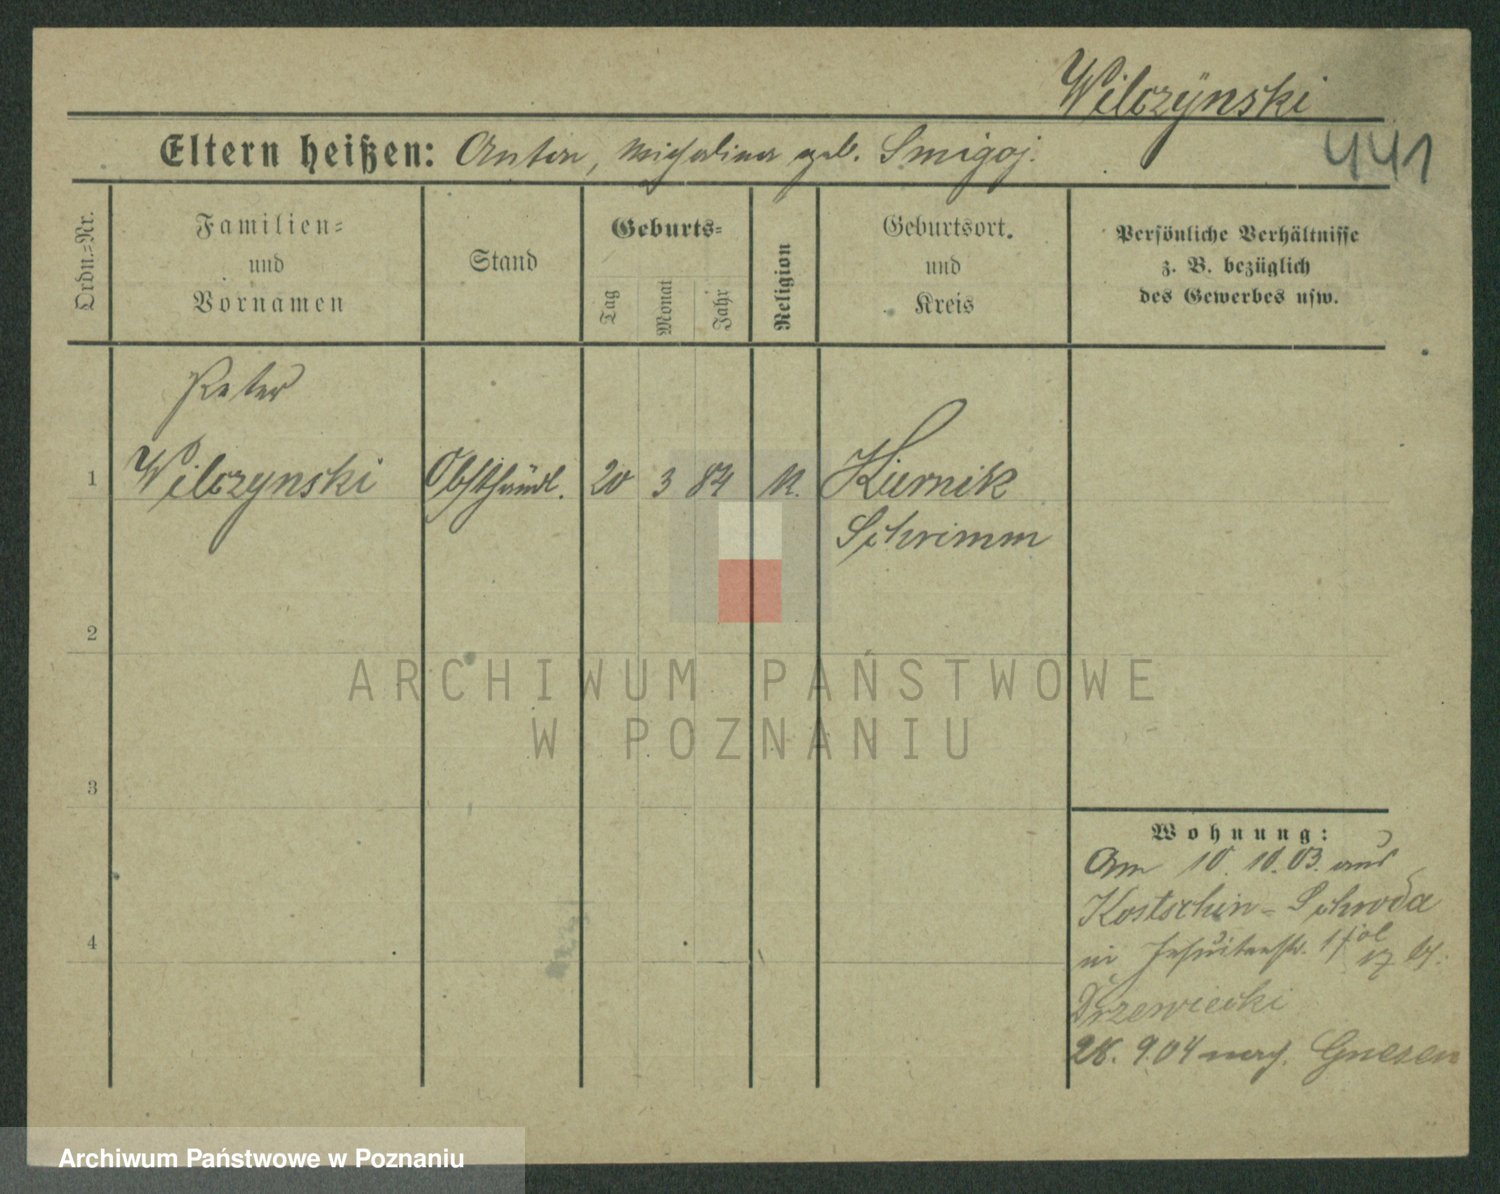 Wilczÿnski
441
Eltern heißen: Anton, Michalina geb. Smigoj.
Ordn.=Nr.
Familien=
und
Vornamen
Stand
Geburts=
Tag
Monat
Jahr
Religion
Geburtsort.
und
Kreis
Persönliche Verhältnisse
z. B. bezüglich
des Gewerbes usw.
Peter
1 Wilczynski Obsthändl. 20 3 84 K. Kurnik
Schrimm
2
3
4
ARCHIWUM PAŃSTWOWE
W POZNANIU
Wohnung:
Am 10. 10. 03. aus
Kostschin=Schroda
in Jesuitenstr. bei
Drzewiecki
28. 9 04 nach Gnesen
Archiwum Państwowe w Poznaniu